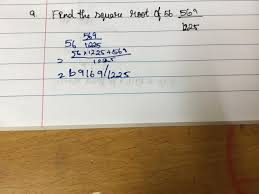 9. Find the square root of 56 569
1225
569
56 1225
56 x 1225 + 569
= 1225
= 69169/1225